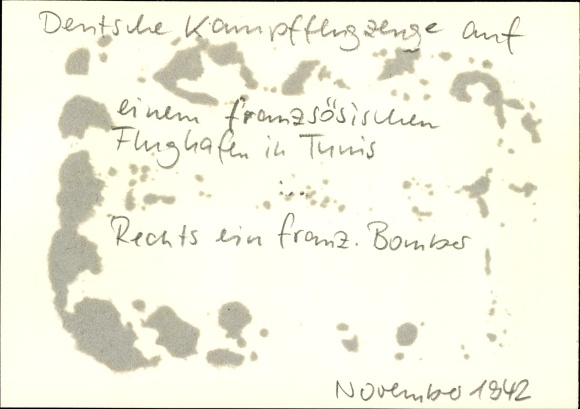 Deutsche Kampfflugzeuge auf
einem franzsösischen
Flughafen in Tunis
:...
Rechts ein franz. Bomber
November 1942